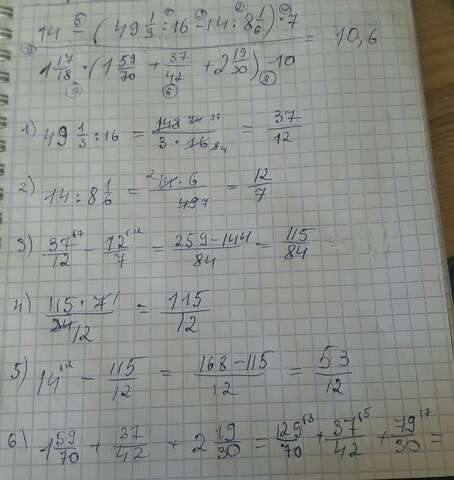 14 - (49 1/3 : 16 - 14 : 8 1/6) · 7
= 10,6
1 17/18 · (1 59/70 + 37/42 + 2 19/30) - 10
1) 49 1/3 : 16 = 148 37 / 3 · 16 4 = 37/12
2) 14 : 8 1/6 = 2 14 · 6 / 49 7 = 12/7
3) 37/12 - 12/7 = 259 - 144 / 84 = 115/84
4) 115 · 7 1 / 84 12 = 115/12
5) 14 - 115/12 = 168 - 115 / 12 = 53/12
6) 1 59/70 + 37/42 + 2 19/30 = 129/70 + 37/42 + 79/30 =